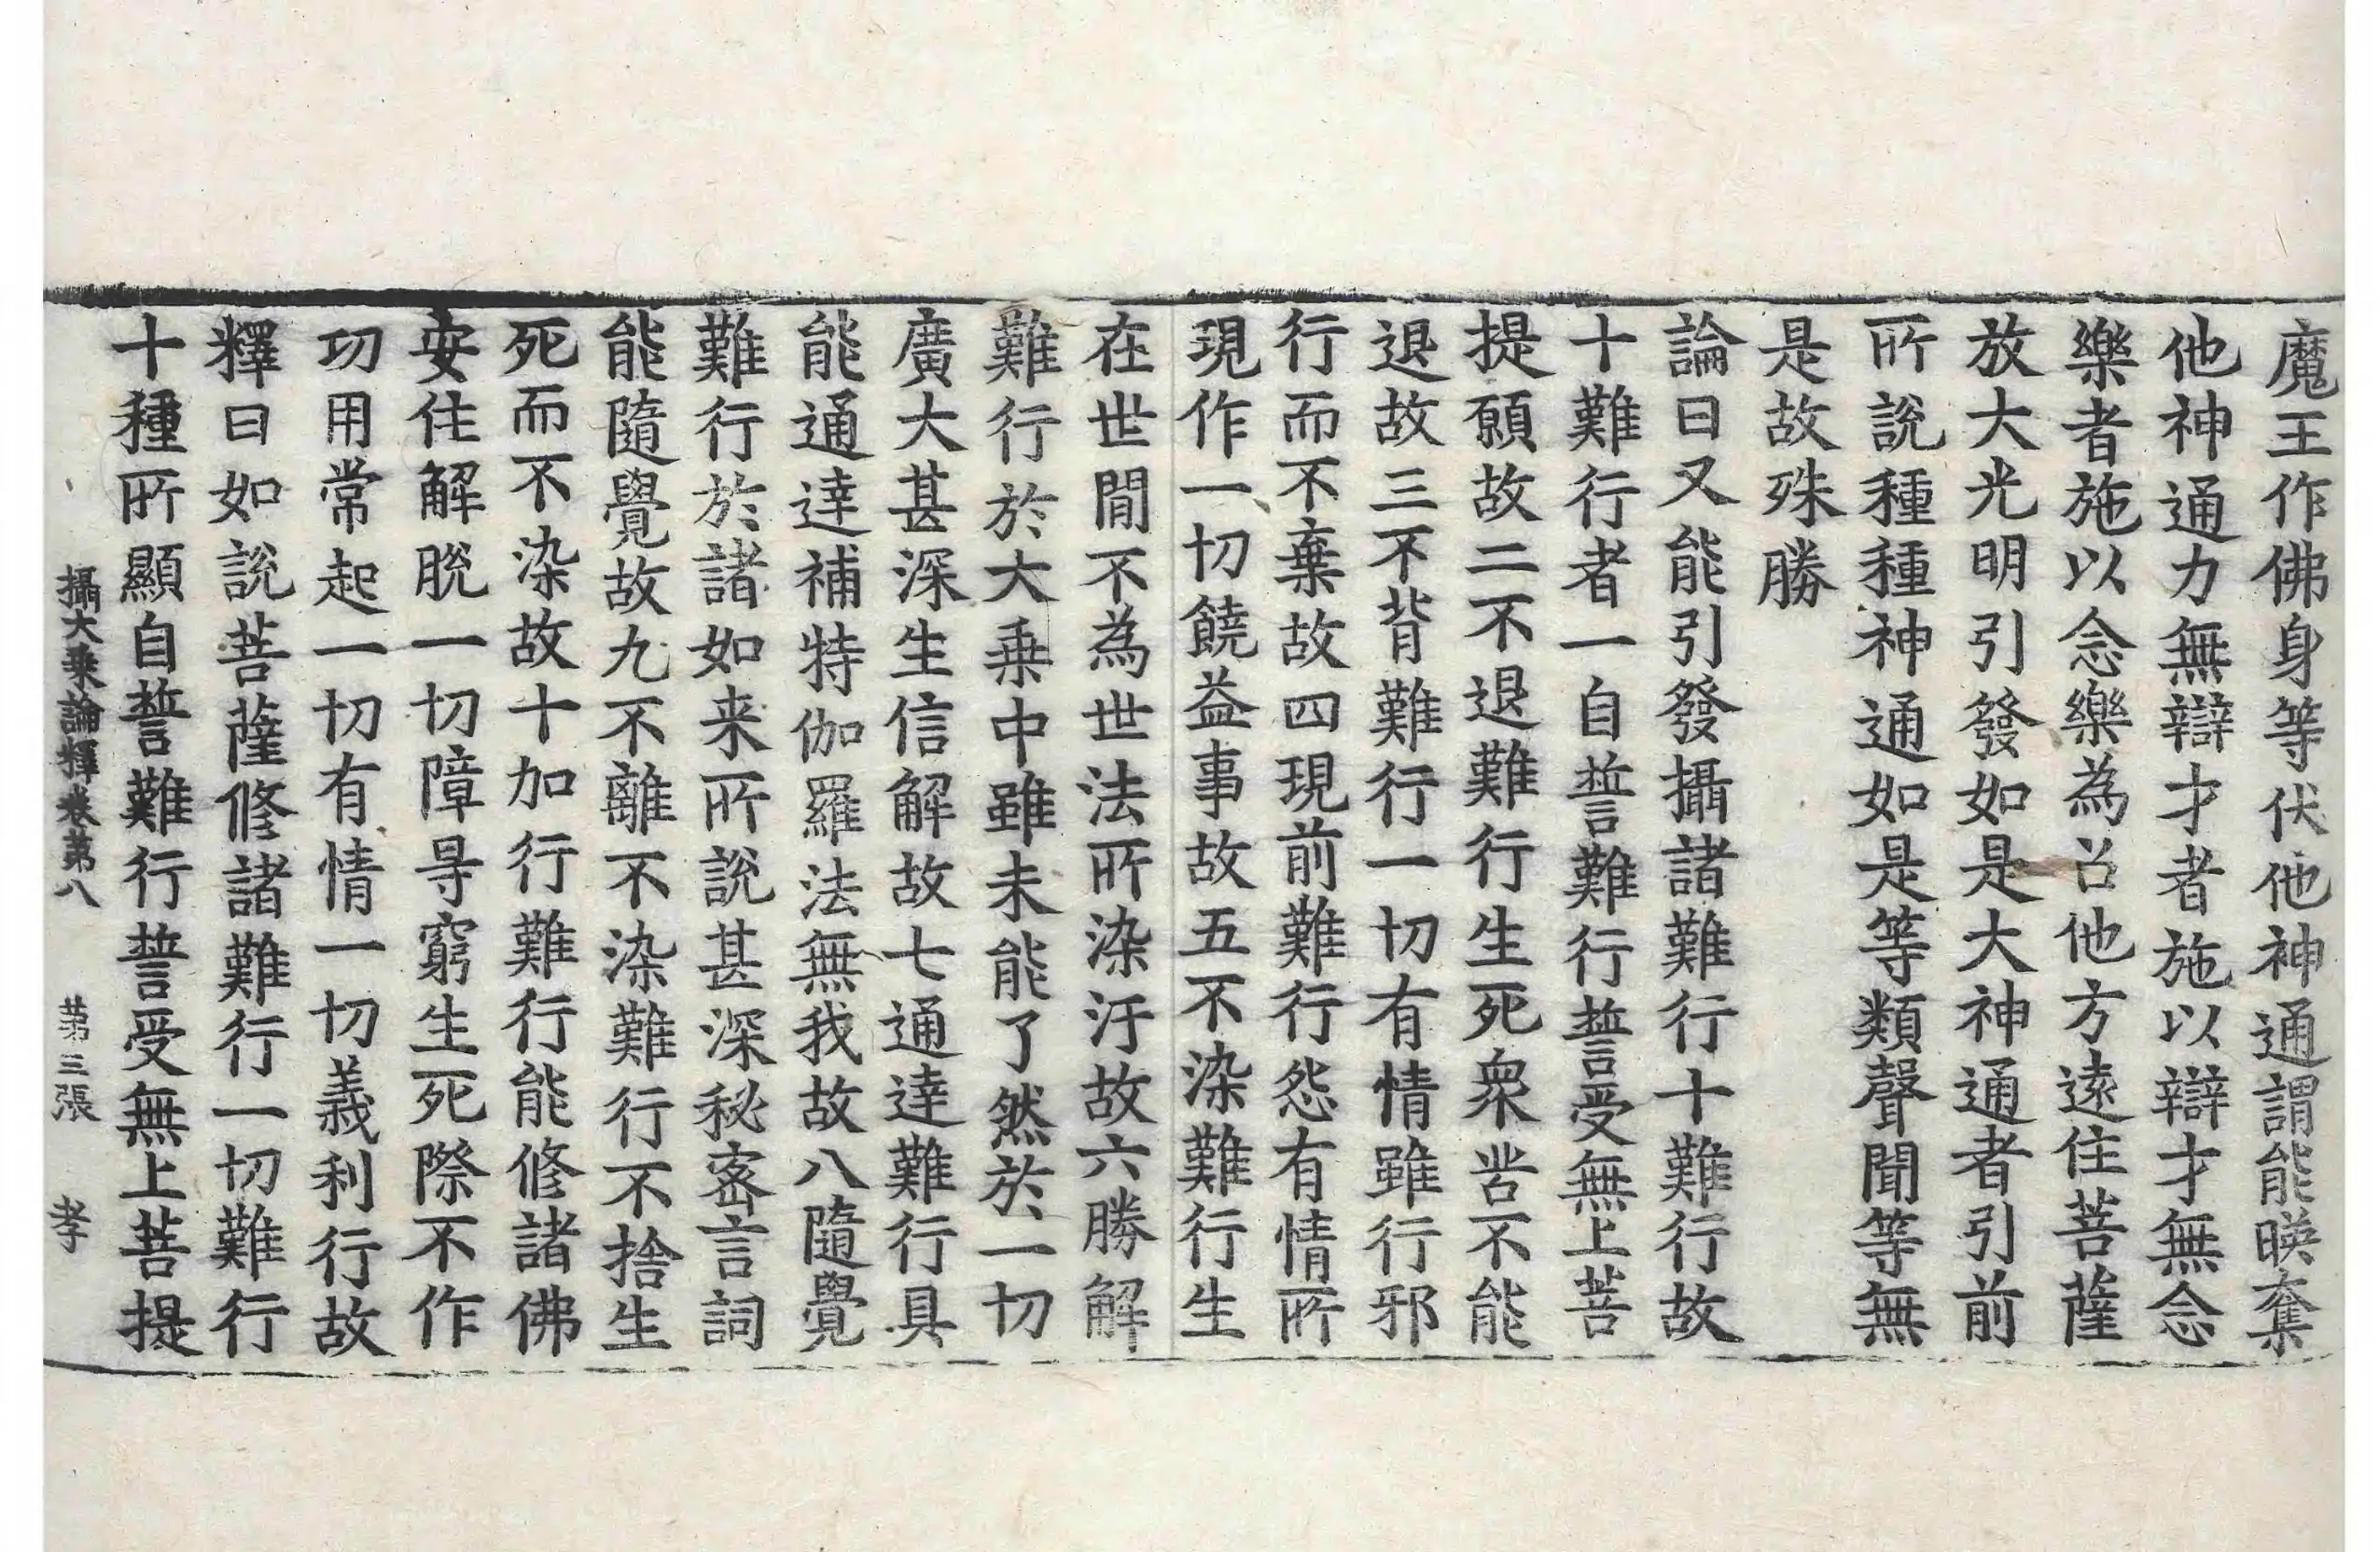 魔王作佛身等伏他神通謂能暎奪
他神通力無辯才者施以辯才無念
樂者施以念樂為召他方遠住菩薩
放大光明引發如是大神通者引前
所說種種神通如是等類聲聞等無
是故殊勝
論曰又能引發攝諸難行十難行故
十難行者一自誓難行誓受無上菩
提願故二不退難行生死衆苦不能
退故三不背難行一切有情雖行邪
行而不棄故四現前難行怨有情所
現作一切饒益事故五不染難行生
在世間不為世法所染汙故六勝解
難行於大乗中雖未能了然於一切
廣大甚深生信解故七通達難行具
能通達補特伽羅法無我故八隨覺
難行於諸如来所說甚深秘密言詞
能隨覺故九不離不染難行不捨生
死而不染故十加行難行能修諸佛
安住解脫一切障㝵窮生死際不作
功用常起一切有情一切義利行故
釋曰如說菩薩修諸難行一切難行
十種所顯自誓難行誓受無上菩提
攝大乗論釋卷第八 第三張 孝